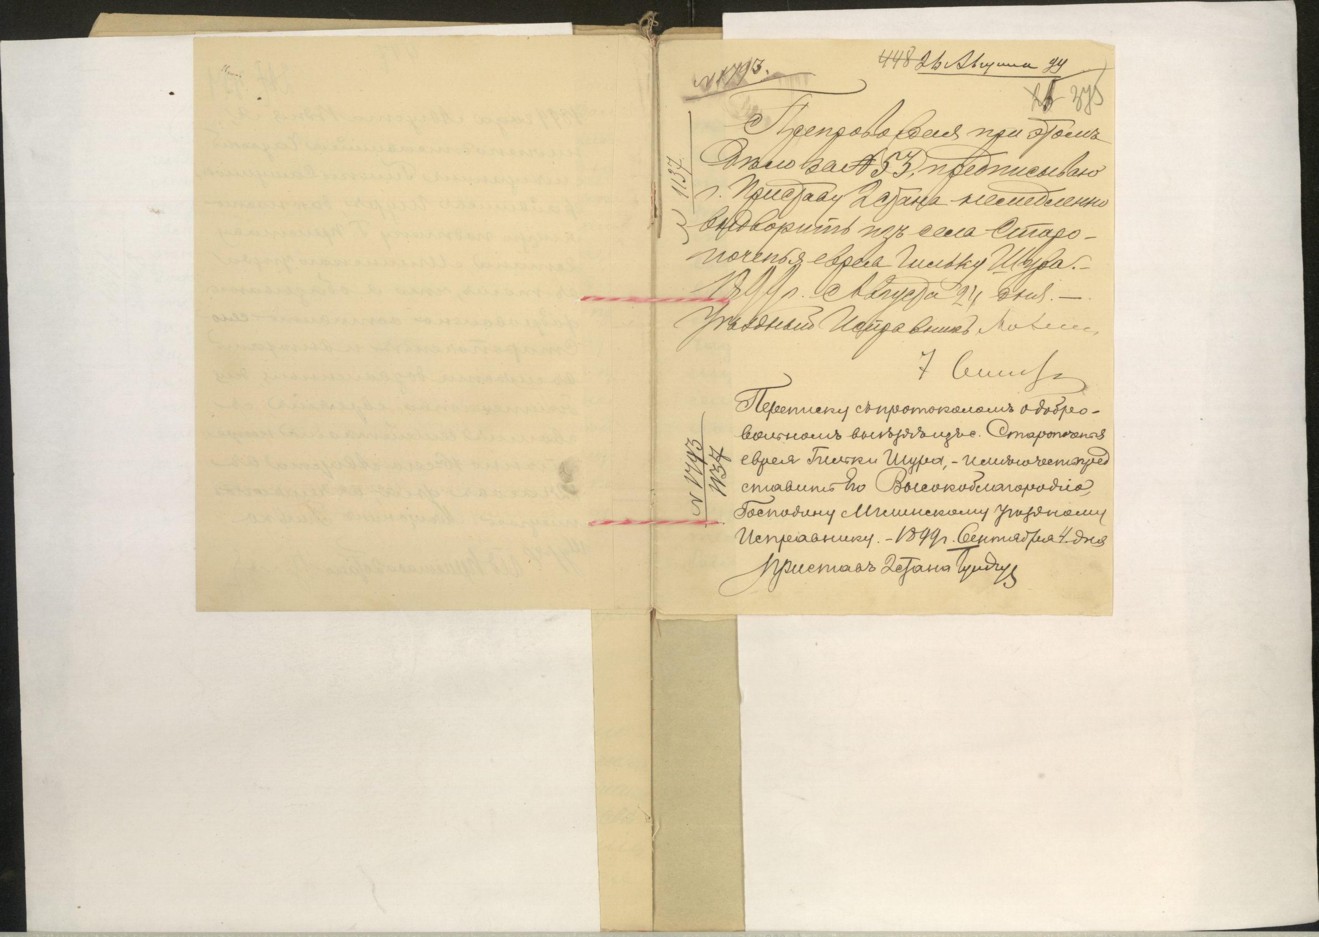 № 1793.
448 26 Августа 99
375
Препровождая при этомъ
дѣло за № 53, предписываю
г. Приставу 2 стана немедленно
выдворить изъ села Старо-
почепья еврея Гильку Шура. –
1899 г. Августа 24 дня. –
Уѣздный Исправникъ
№ 1137
Переписку съ протоколомъ о добро-
вольномъ выѣздѣ изъ с. Старопочепья
еврея Гильки Шура, – имѣю честь пред
ставить Его Высокоблагородію,
Господину Мглинскому Уѣздному
Исправнику. – 1899 г. Сентября 4 дня
Приставъ 2 стана
№ 1793
1137